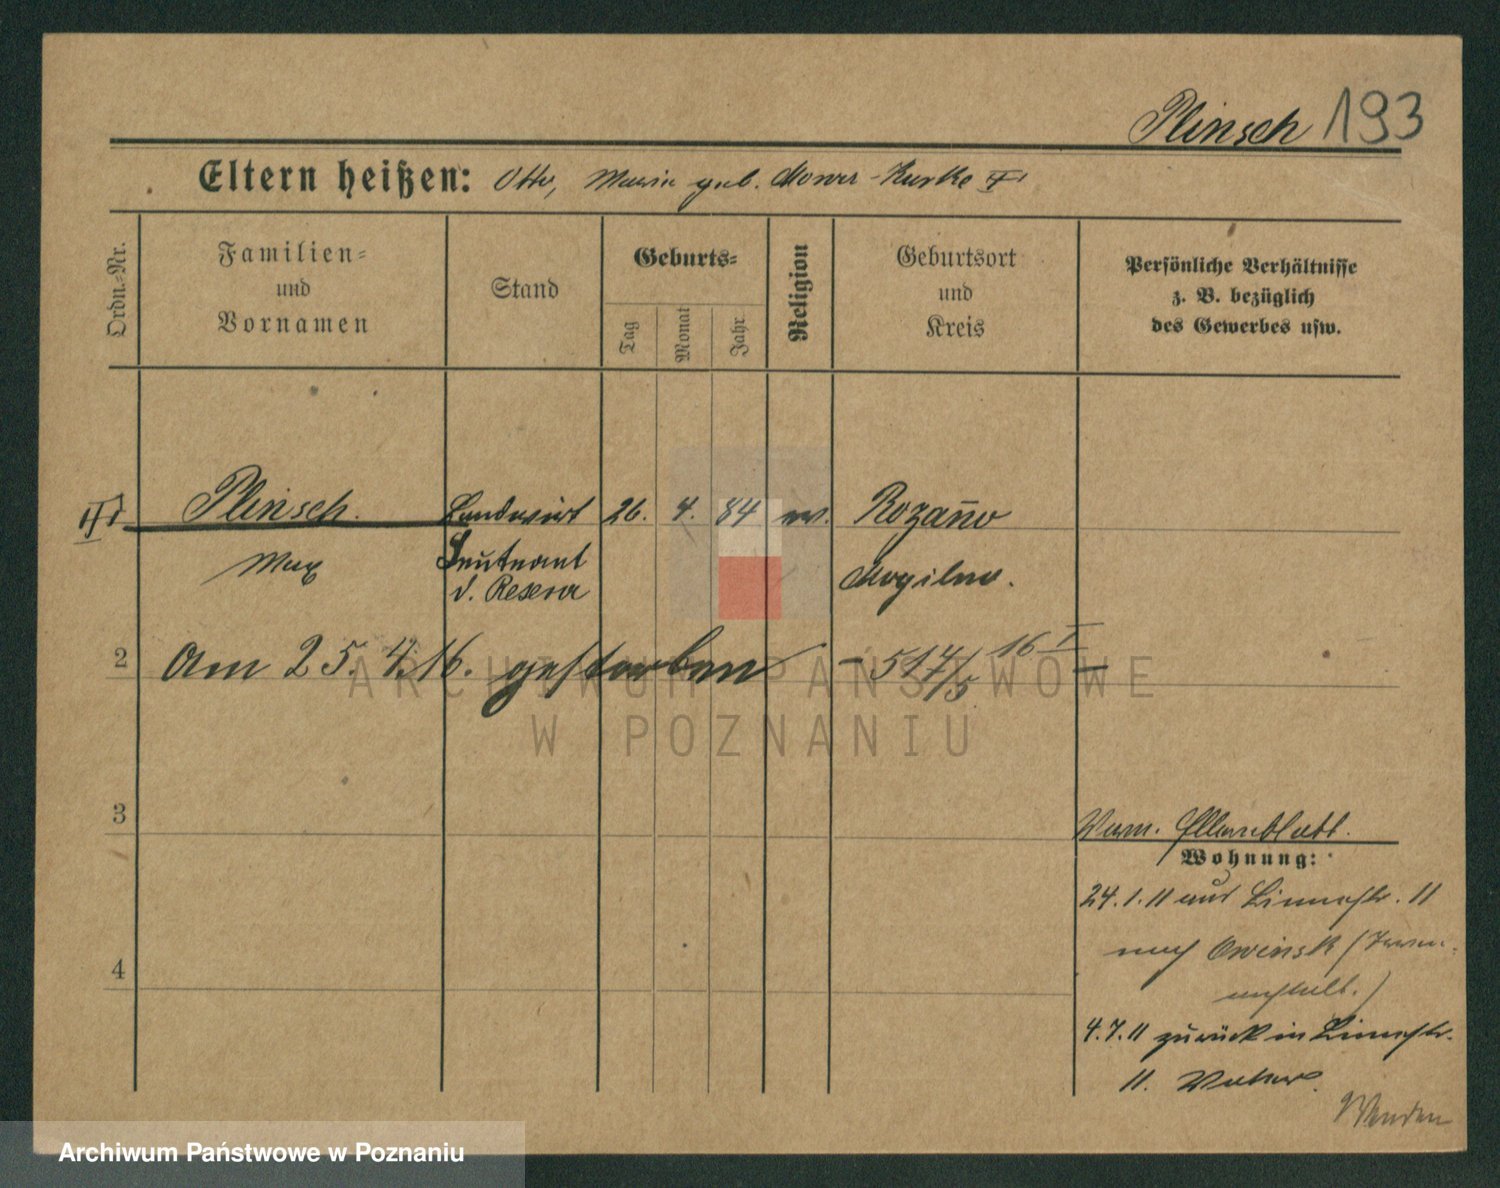 Plinsch 193
Eltern heißen: Otto, Maria geb.
Ordn.=Nr.
Familien=
und
Vornamen
Stand
Geburts=
Tag
Monat
Jahr
Religion
Geburtsort
und
Kreis
Persönliche Verhältnisse
z. B. bezüglich
des Gewerbes usw.
Plinsch. Landwirt 26. 4. 84 ev. Rozaño
Max Leutnant Mogilno.
d. Reserve
2 Am 25.4.16. gestorben - 517/5 16 I -
3
Wohnung:
24.1.11 aus Linnestr. 11
nach Owinsk (Irren-
anstalt.)
4
4.7.11 zurück in Linnestr.
11. Vater.
Wenden
ARCHIWUM PAŃSTWOWE
W POZNANIU
Archiwum Państwowe w Poznaniu